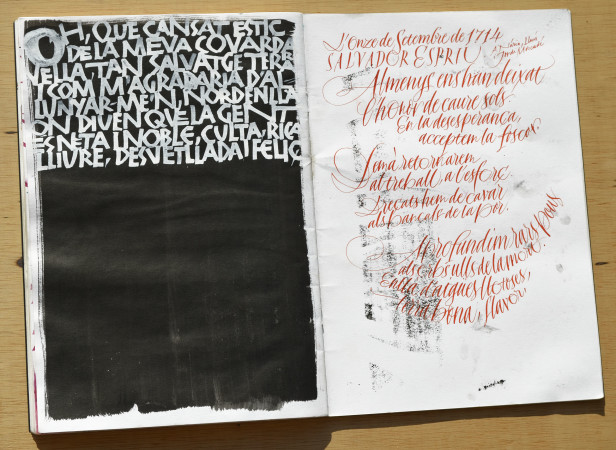 OH, QUE CANSAT ESTIC
DE LA MEVA COVARDA
VELLA, TAN SALVATGE TERRA
I COM M'AGRADARIA D'AL
LUNYAR-ME'N, NORD ENLLÀ
ON DIUEN QUE LA GENT
ÉS NETA I NOBLE, CULTA, RICA
LLIURE, DESVETLLADA I FELIÇ
L'Onze de Setembre de 1714
SALVADOR ESPRIU
Almenys ens han deixat
l'honor de caure sols.
En la desesperança,
acceptem la foscor.
Demà retornarem
al treball, a l'esforç.
Dreçats hem de cavar
als bancals de la por.
Aprofundim rars pous
als ulls de la mort.
Enllà d'aigües lloroses,
serà bona llavor.